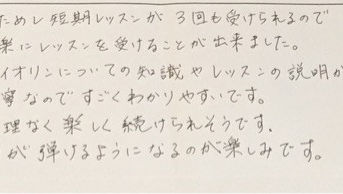 ためし短期レッスンが3回も受けられるので
楽にレッスンを受けることが出来ました。
イオリンについての知識やレッスンの説明が
寧なのですごくわかりやすいです。
理なく楽しく続けられそうです.
が弾けるようになるのが楽しみです。